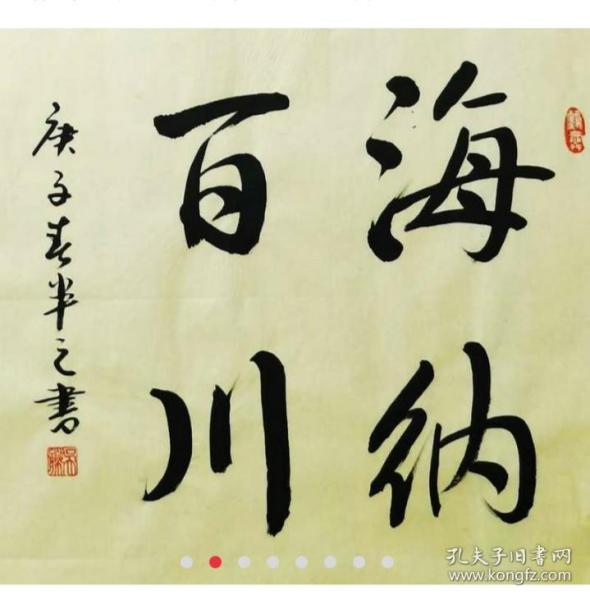 海纳
百川
庚子春半之書
孔夫子旧書网
www.kongfz.com